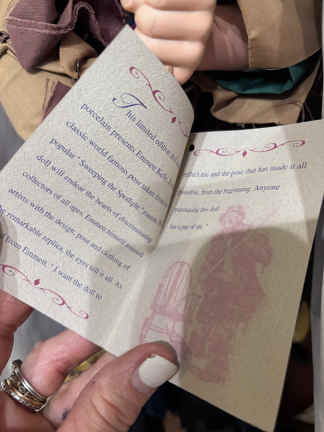 This limited edition
porcelain presents Emmett Kelly,
classic world famous pose taken from
popular "Sweeping the Spotlight"
doll will endear the hearts of discriminating
collectors of all ages. Emmett himself
artists with the design, pose and clothing of
remarkable replica, the eyes tell it all. As
from Emmett, "I want the doll to
reflect me and the pose that has made it all
possible, from the beginning. Anyone
the doll